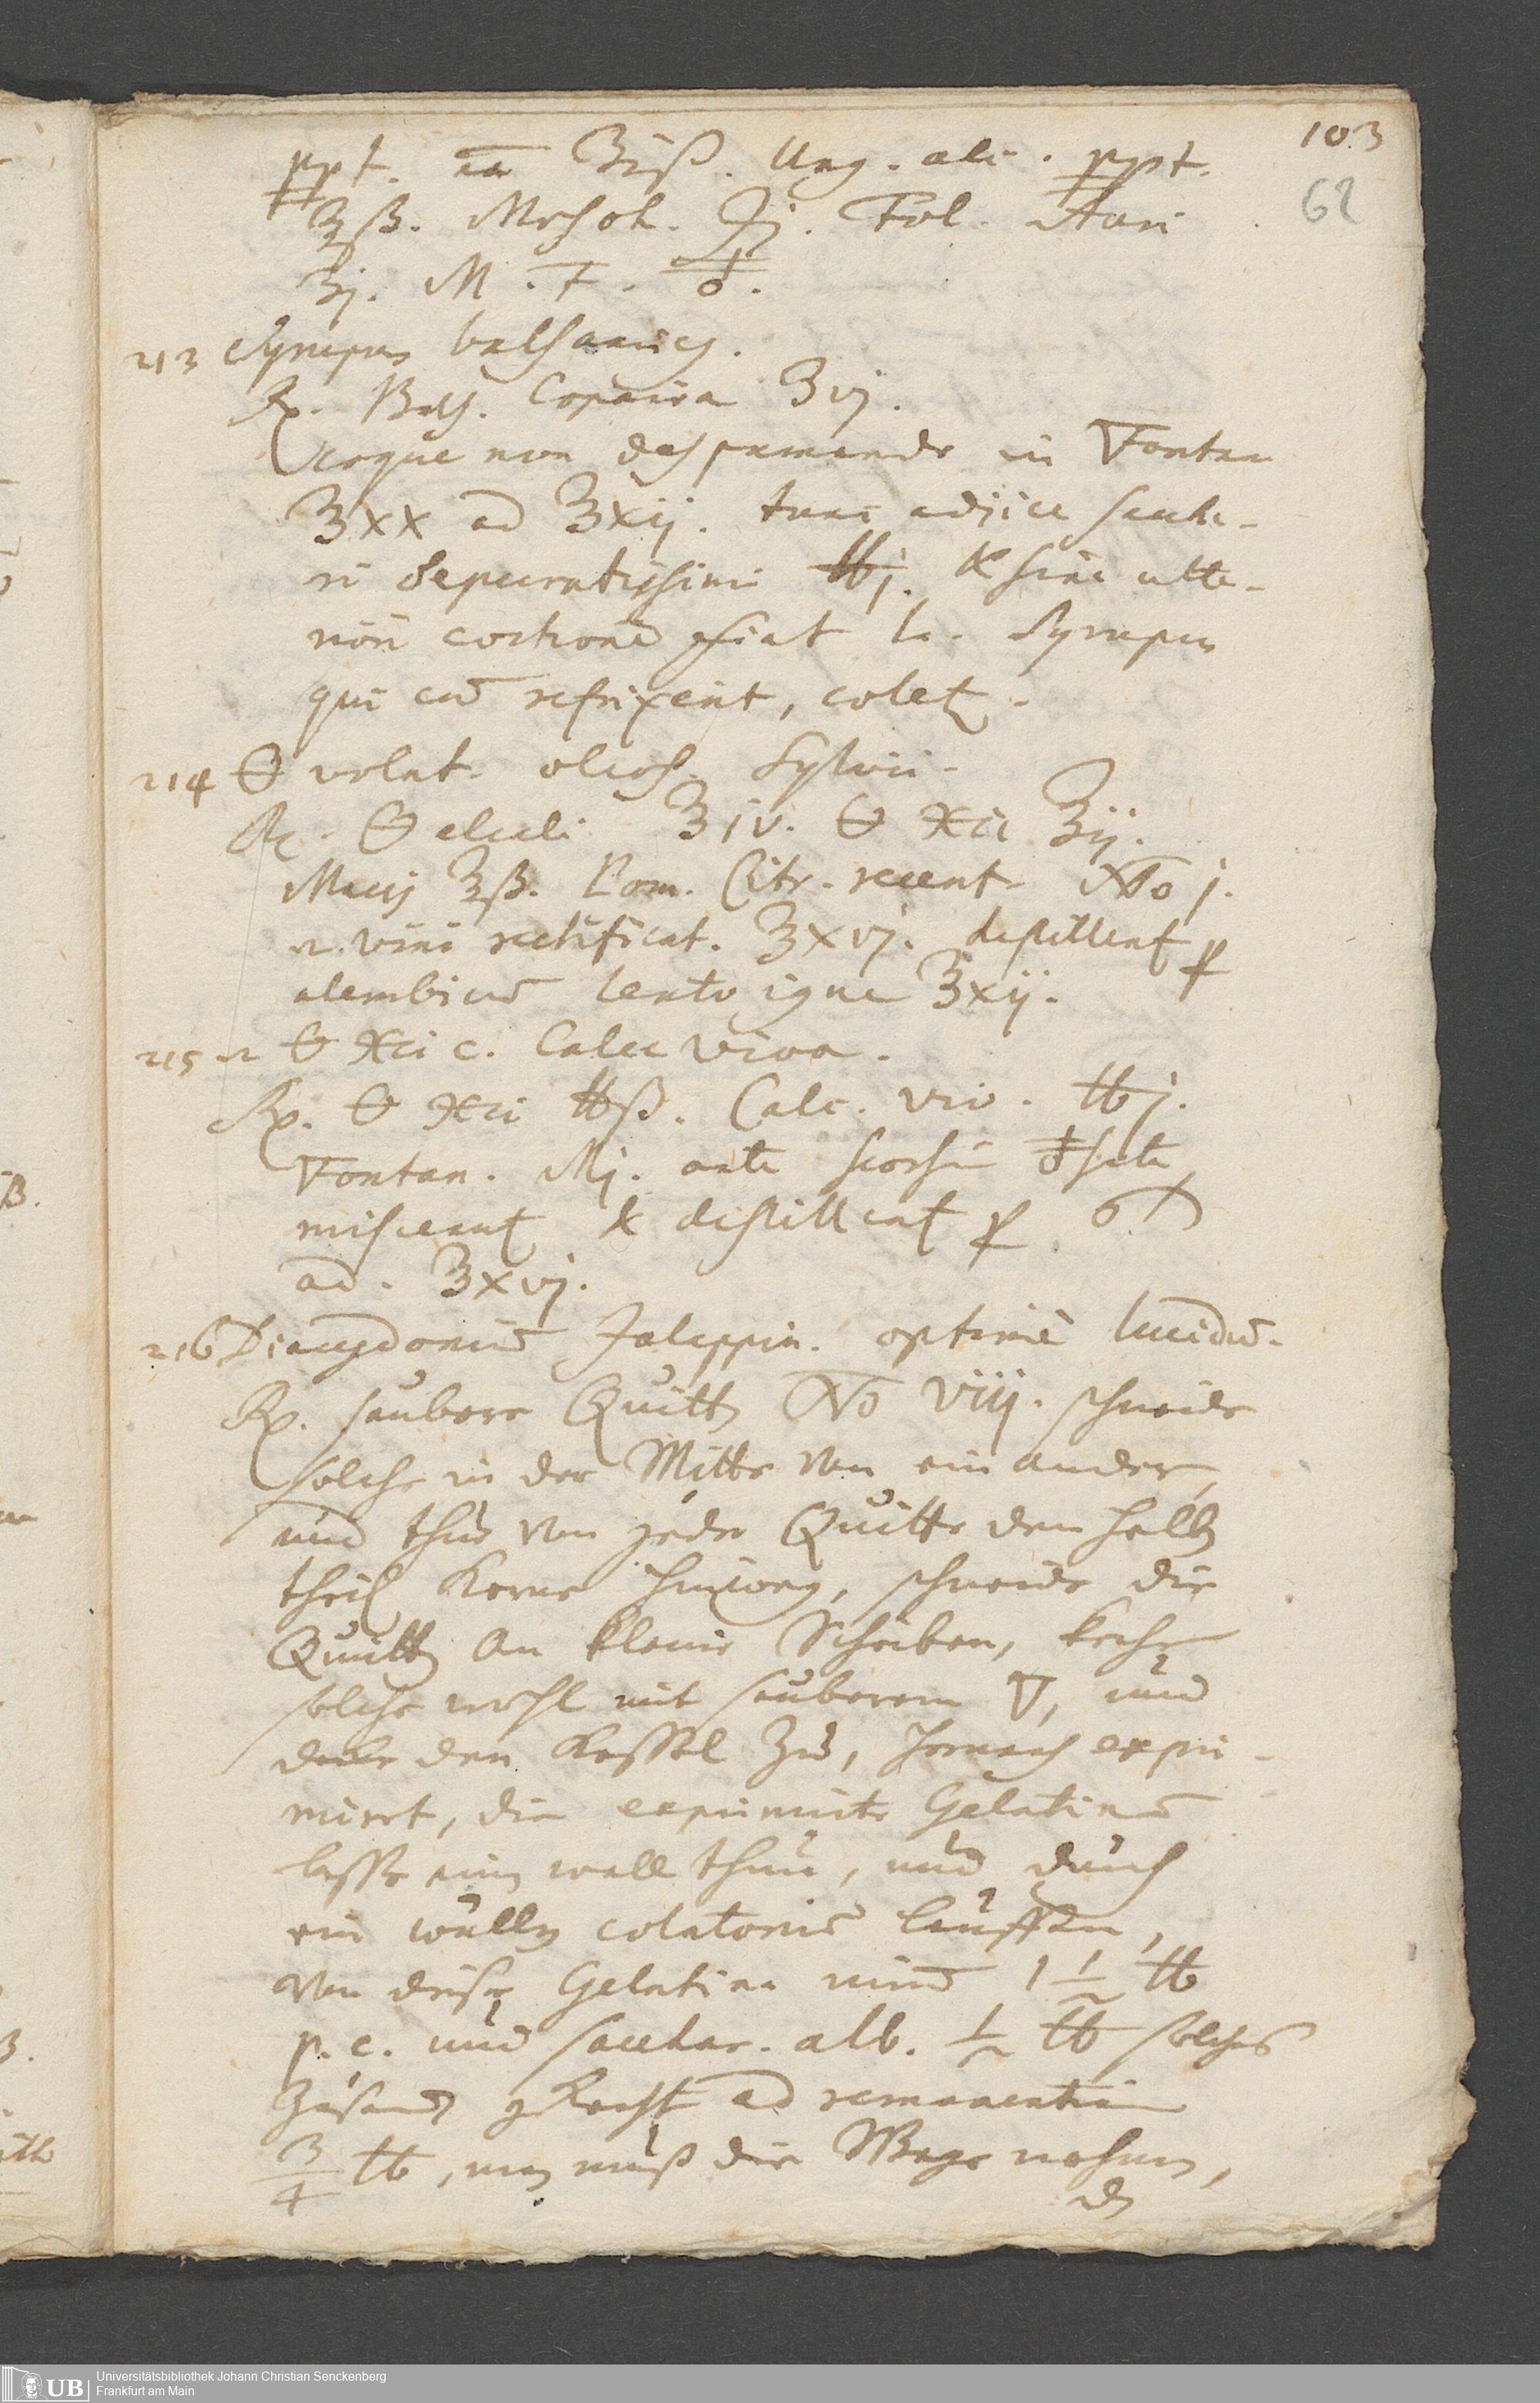 103
62
ppt. āā ʒiß. Ung. alc. ppt.
ʒß. Mosch. ℈j. Fol. Auri
ʒj. M. F. 🜿.
213 Syrupus balsamicꝰ.
℞. Bals. Copaiva ℥vj.
coque non despumando in 🜄 Fontan
℥xx ad ℥xij. tunc adjice sacha-
ri depuratissimi ℔j. & sine ulte-
riori coctione fiat l. a. Syrupus
qui cum refrixerit, colet.
214 🜔 volat. oleos. Sylvii.
℞. 🜔 alcali ℥iv. 🜔 ✳ci ℥ij.
Macis ℥ß. Pom. Citr. recent. No j.
vini rectificat. ℥xvj. distillent p
alembicum lento igne ℥xij.
215 🜔 ✳ci c. Calce viva.
℞. 🜔 ✳ci ℔ß. Calc. viv. ℔j.
🜄 Fontan. Mj. ante seorsim
misceant & distillent p
ad. ℥xvj.
216 Diacydonium Jalappin. optimè lucidum.
℞. saubere Quitten No viij. schneide
solche in der Mitte von ein ander,
und thue von jeder Quitte den halben
theil Kerne hinweg, schneide die
Quitten an kleine Scheiben, koche
solche wohl mit sauberem 🜄, und
decke den Kessel zu, hernach expri-
mirt, die exprimirte Gelatinam
lasse ein wall thun, und durch
ein wüllen colatorium lauffen,
von diser Gelatina nimm 1 1/2 ℔
p. c. und sacchar. alb. 1/2 ℔ solches
zusamen gekocht ad remanentiam
3/4 ℔, man muß die Wage nehmen,